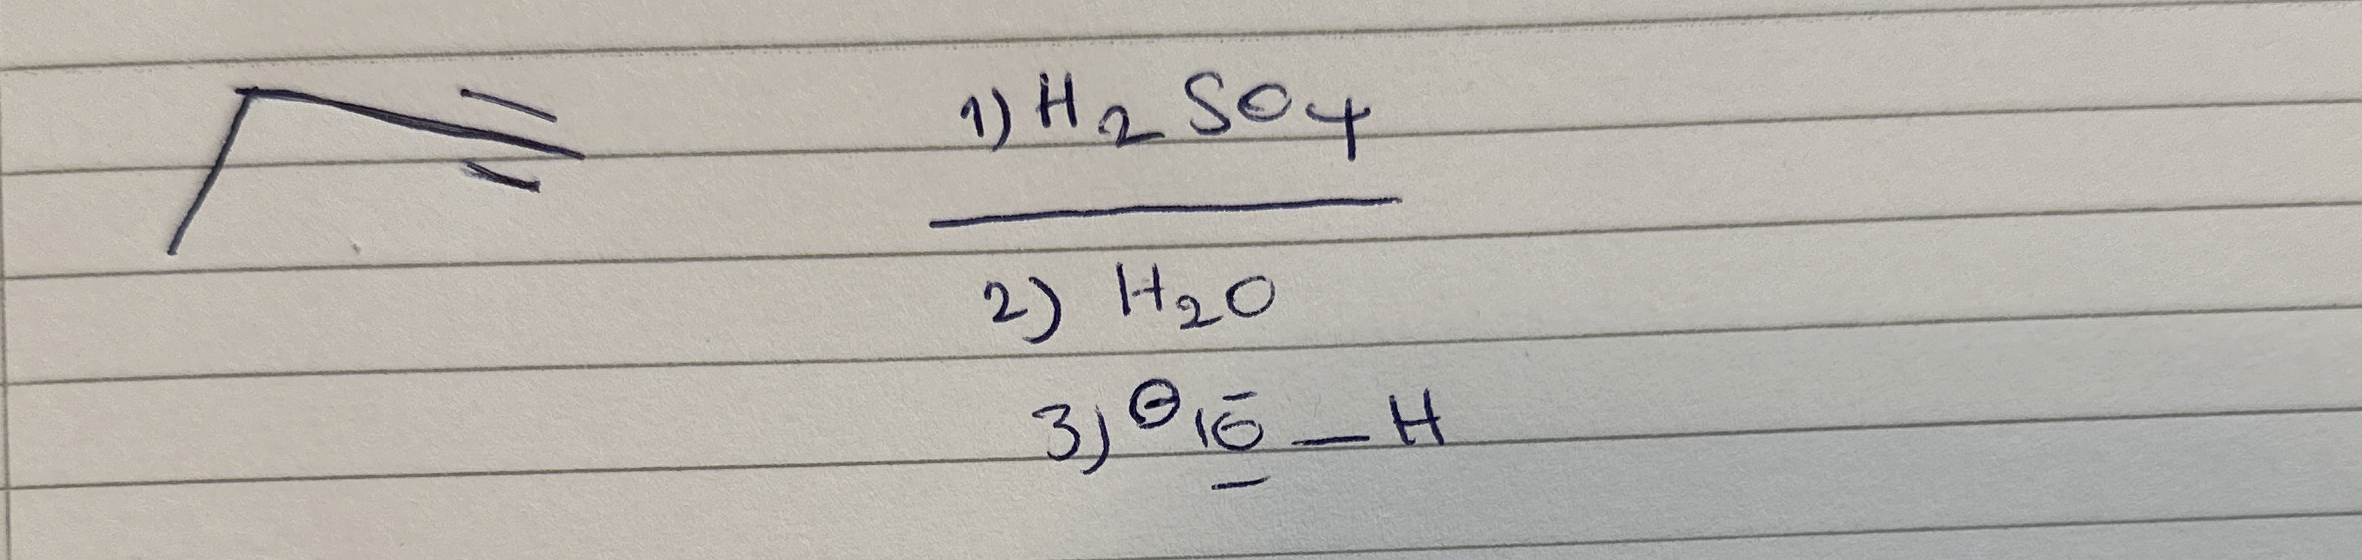 1) H2SO4
2) H2O
3) ⊖|O̲̅—H